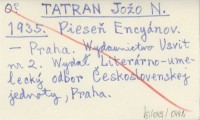 TATRAN Jožo N.
1935. Pieseň Encyánov.
— Praha. Wydawnictwo Úsvit
nr 2. Wydal Literárno-ume-
lecký odbor Československej
jednoty, Praha.